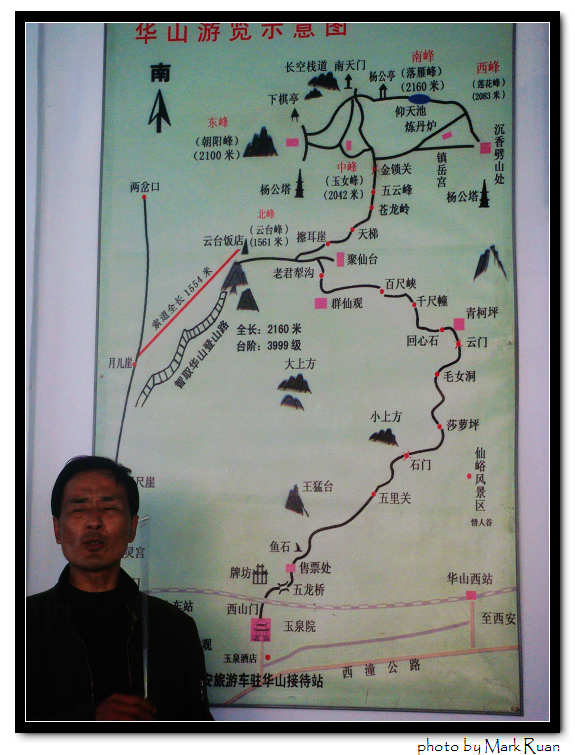 华山游览示意图
南
南峰
(落雁峰)
(2160 米)
西峰
(莲花峰)
(2083 米)
长空栈道
南天门
杨公亭
下棋亭
仰天池
炼丹炉
东峰
(朝阳峰)
(2100 米)
沉香劈山处
镇岳宫
中峰
(玉女峰)
(2042 米)
金锁关
杨公塔
五云峰
杨公塔
两岔口
苍龙岭
北峰
(云台峰)
(1561 米)
云台饭店
擦耳崖
天梯
聚仙台
老君犁沟
索道全长 1554 米
百尺峡
群仙观
千尺幢
青柯坪
智取华山登山路
全长：2160 米
台阶：3999 级
回心石
云门
月儿崖
大上方
毛女洞
小上方
莎萝坪
仙峪风景区
石门
尺崖
王猛台
五里关
情人谷
鱼石
灵宫
售票处
牌坊
五龙桥
华山西站
车站
西山门
至西安
玉泉院
观
玉泉酒店
西潼公路
安旅游车驻华山接待站
photo by Mark Ruan